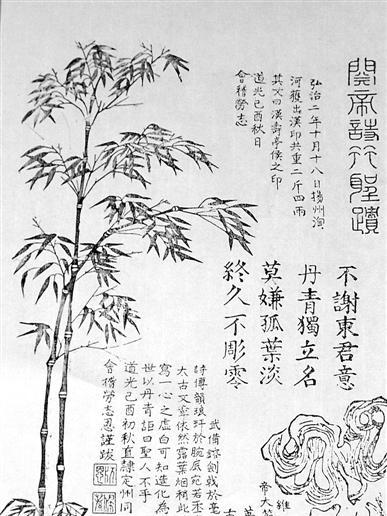 關帝詩竹聖蹟
弘治二年十月十八日揚州淘
河獲出漢印共重二斤四兩
其文曰漢壽亭侯之印
道光己酉秋日
會稽勞志
不謝東君意
丹青獨立名
莫嫌孤葉淡
終久不彫零
維
帝大
武備餘戟於
詩傳韻琅玕於腕底宛若
太古文章依然露葉烟梢此
寫一心之虛白可知造化為
世以丹青詎曰聖人不
道光己酉初秋直隸定州同
會稽勞志忍謹跋